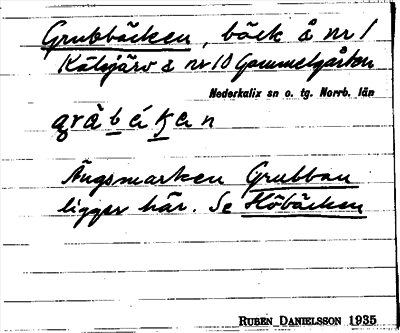 Grubbäcken, bäck å nr 1
Kälsjärv å nr 10 Gammelgården
Nederkalix sn o. tg. Norrb. län
Ängsmarken Grubban
ligger här. Se Höbäcken
RUBEN DANIELSSON 1935